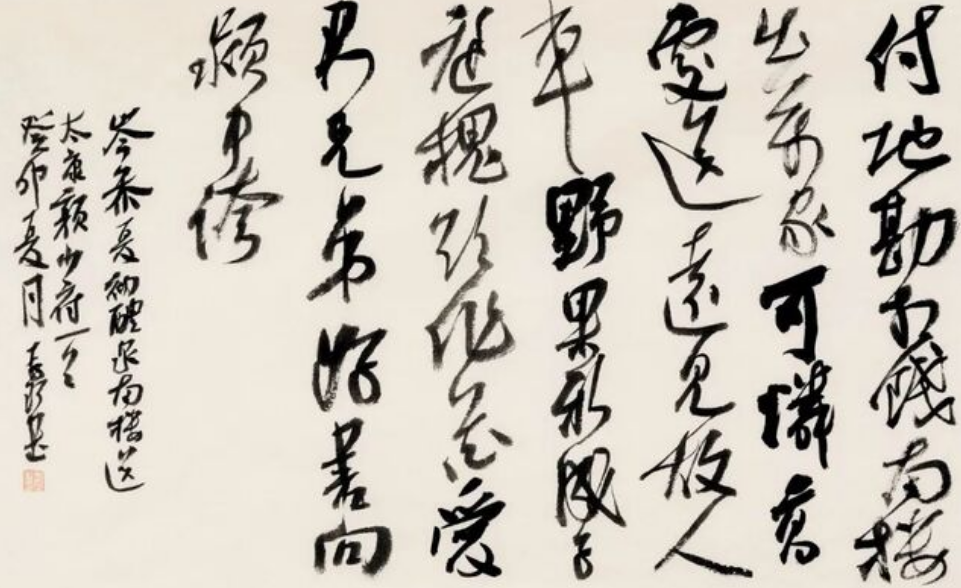 何地勘相餞南樓
出萬家可憐高
處送遠見故人
車野果新成子
庭槐欲作花愛
君兄弟好書向
潁中誇
岑參夏初醴泉南樓送
太康顏少府一首
癸卯夏月